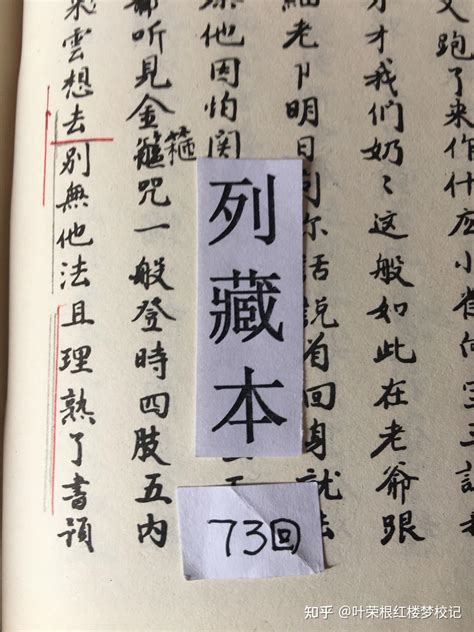 又跑了来作什庅小
才我们奶〻这般如此在老爺跟
明日
話說
回身就
他因怕関
听見金籠咒一般登時四肢五内
箍
雲想去别無他法且理熟了書預
列藏本
73回
知乎 @叶荣根红楼梦校记